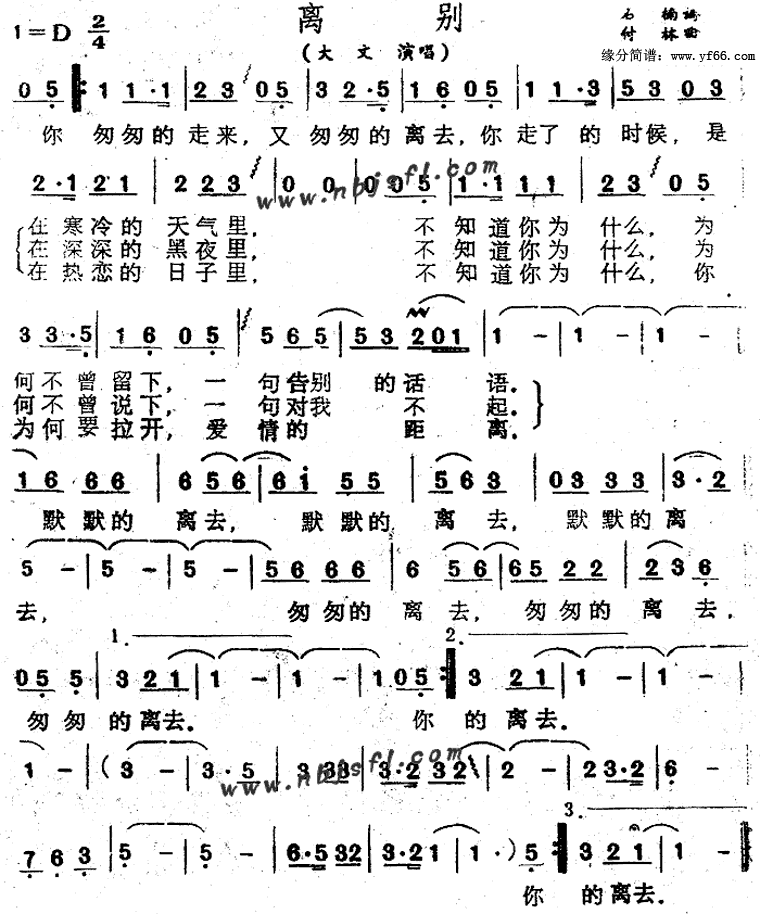 离 别
1=D 2/4
(大 文 演唱)
付 林 曲
缘分简谱: www.yf66.com
0 5 ‖: 1 1 1·1 | 2 2 3 0 5 | 3 2·5 | 1 6 0 5 | 1 1 1·3 | 5 3 0 3 |
你 匆匆的走来, 又 匆匆的离去, 你 走了 的 时候, 是
2·1 2 1 | 2 2 3 | 0 0 | 0 0 5 | 1·1 1 1 | 2 3 0 5 |
www.nbjsfl.com
在寒冷的 天气里, 不 知道你为 什么, 为
在深深的 黑夜里, 不 知道你为 什么, 为
在热恋的 日子里, 不 知道你为 什么, 你
3 3·5 | 1 6 0 5 | 5 6 5 | 5 3 2 0 1 | 1 - | 1 - | 1 -
何不曾留下, 一 句告别 的话 语.
何不曾说下, 一 句对我 不 起.
为何要拉开, 爱 情的 距 离.
1 6 6 6 | 6 5 6 | 6 i 5 5 | 5 6 3 | 0 3 3 3 | 3·2
默默的 离去, 默默的 离 去, 默默的 离
5 - | 5 - | 5 - | 5 6 6 6 | 6 5 6 | 6 5 2 2 | 2 3 6
去, 匆匆的 离去, 匆匆的 离去,
1.
2.
0 5 5 | 3 2 1 | 1 - | 1 - | 1 0 5 :‖ 3 2 1 | 1 - | 1 -
匆匆 的离去. 你 的 离去.
1 - | (3 - | 3·5 | 3 3 3 | 3·2 3 2 | 2 - | 2 3·2 | 6 -
www.nbjsfl.com
3.
7 6 3 | 5 - | 5 - | 6·5 3 2 | 3·2 1 | 1 ·) 5 :‖ 3 2 1 | 1 -
你 的离去.